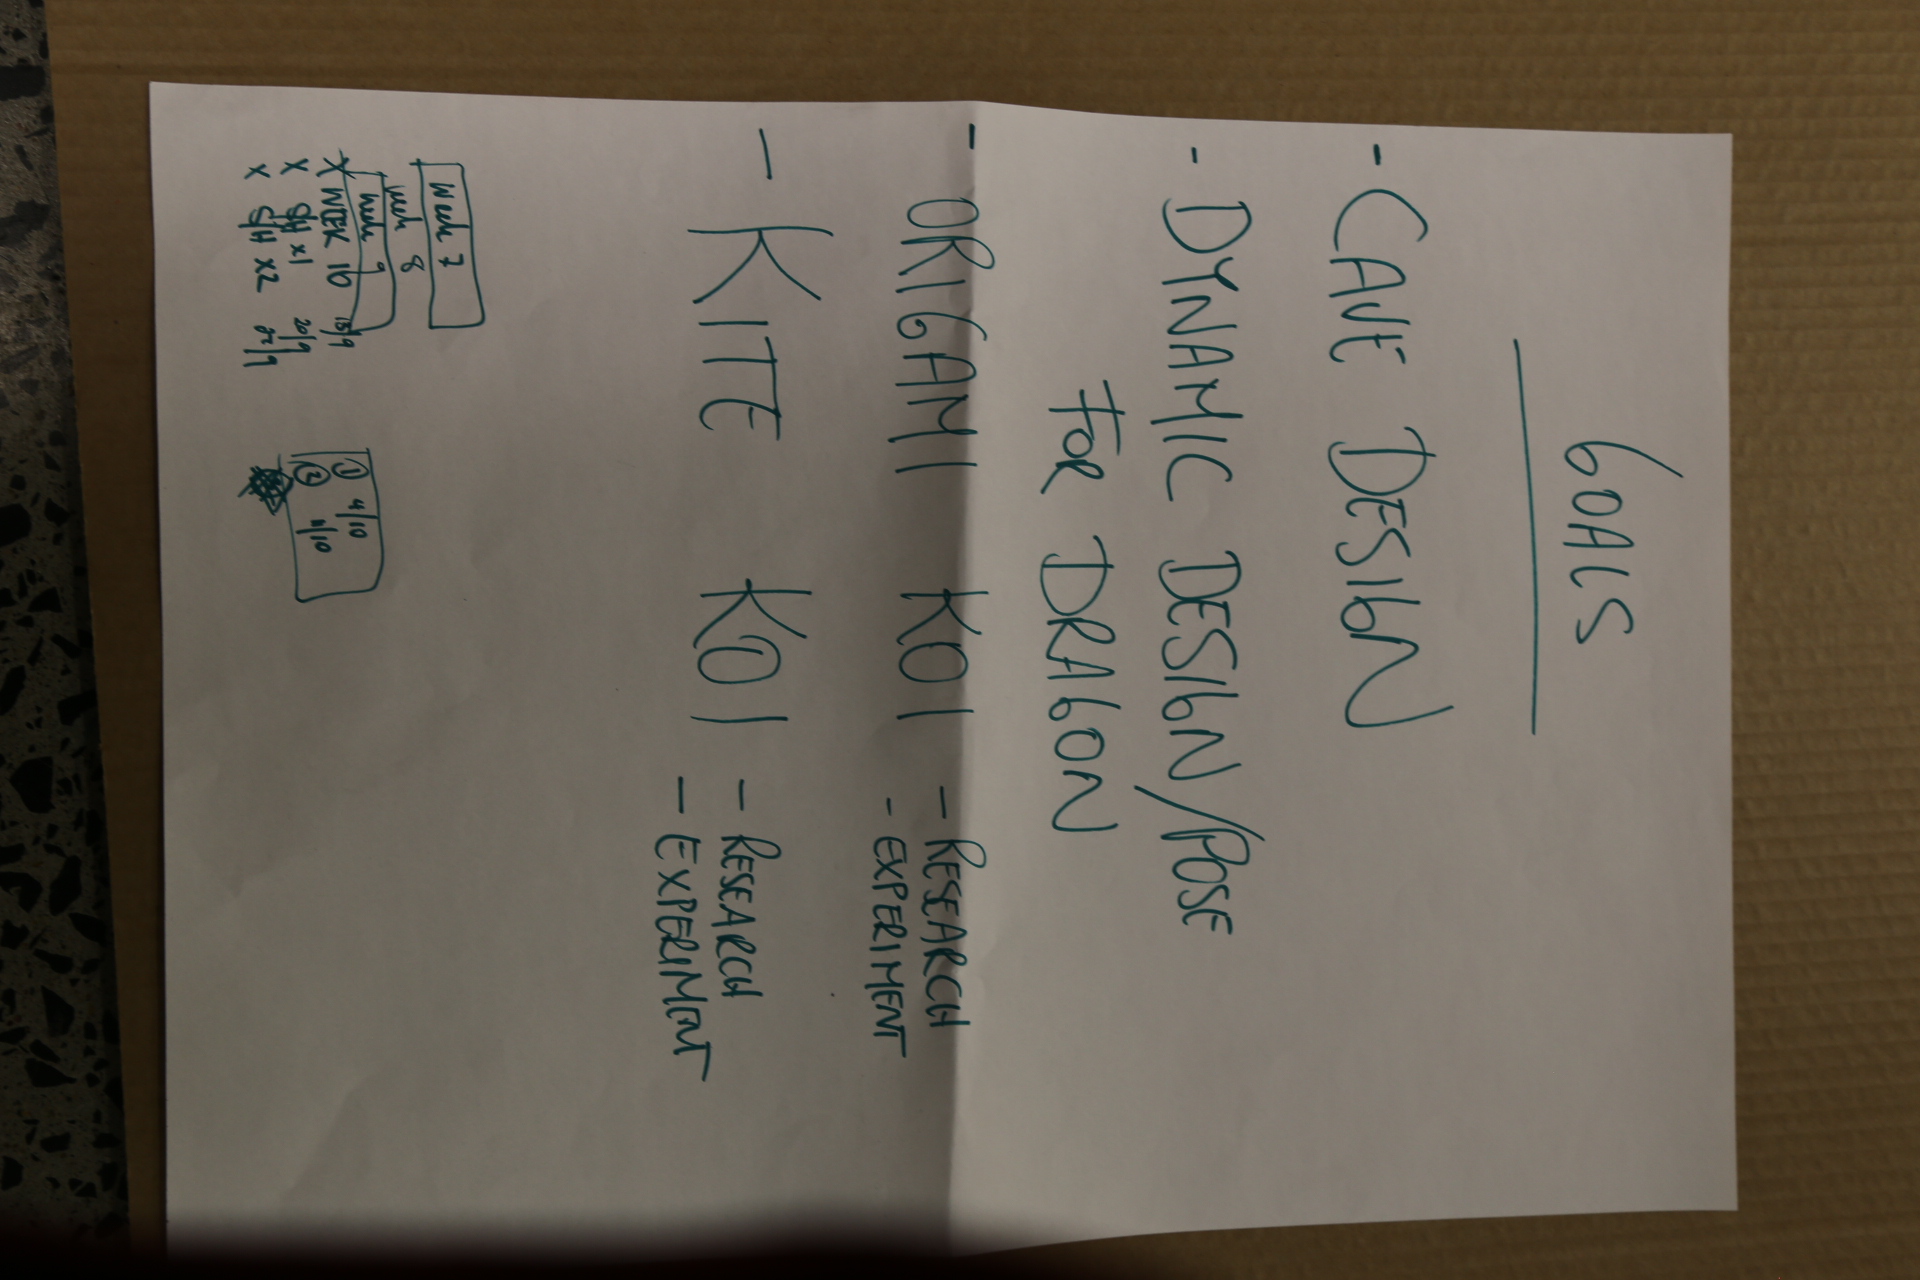 GOALS
- CAVE DESIGN
- DYNAMIC DESIGN/POSE
FOR DRAGON
- ORIGAMI KOI - RESEARCH
- EXPERIMENT
- KITE KOI - RESEARCH
- EXPERIMENT
Week 7
Week 8
Week 9
X WEEK 10 13/9
X SH x1 20/9
X SH x2
① 4/10
② 11/10